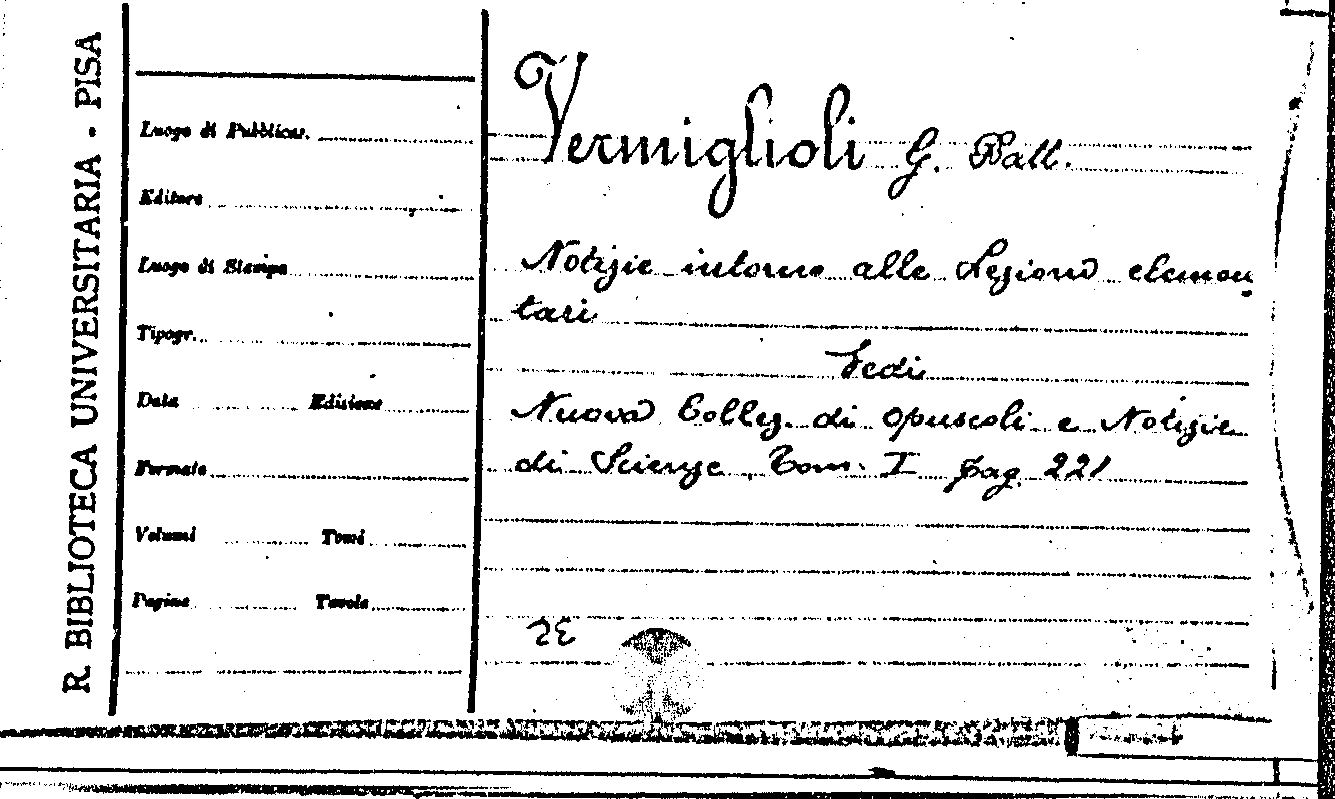 R. BIBLIOTECA UNIVERSITARIA - PISA
Luogo di Pubblicaz.
Editore
Luogo di Stampa
Tipogr.
Data Edizione
Formato
Volumi Tomi
Pagine Tavole
Vermiglioli G. Batt.
Notizie intorno alle Lezioni elemen
tari
Vedi
Nuova Collez. di Opuscoli e Notizie
di Scienze Tom. I pag. 221